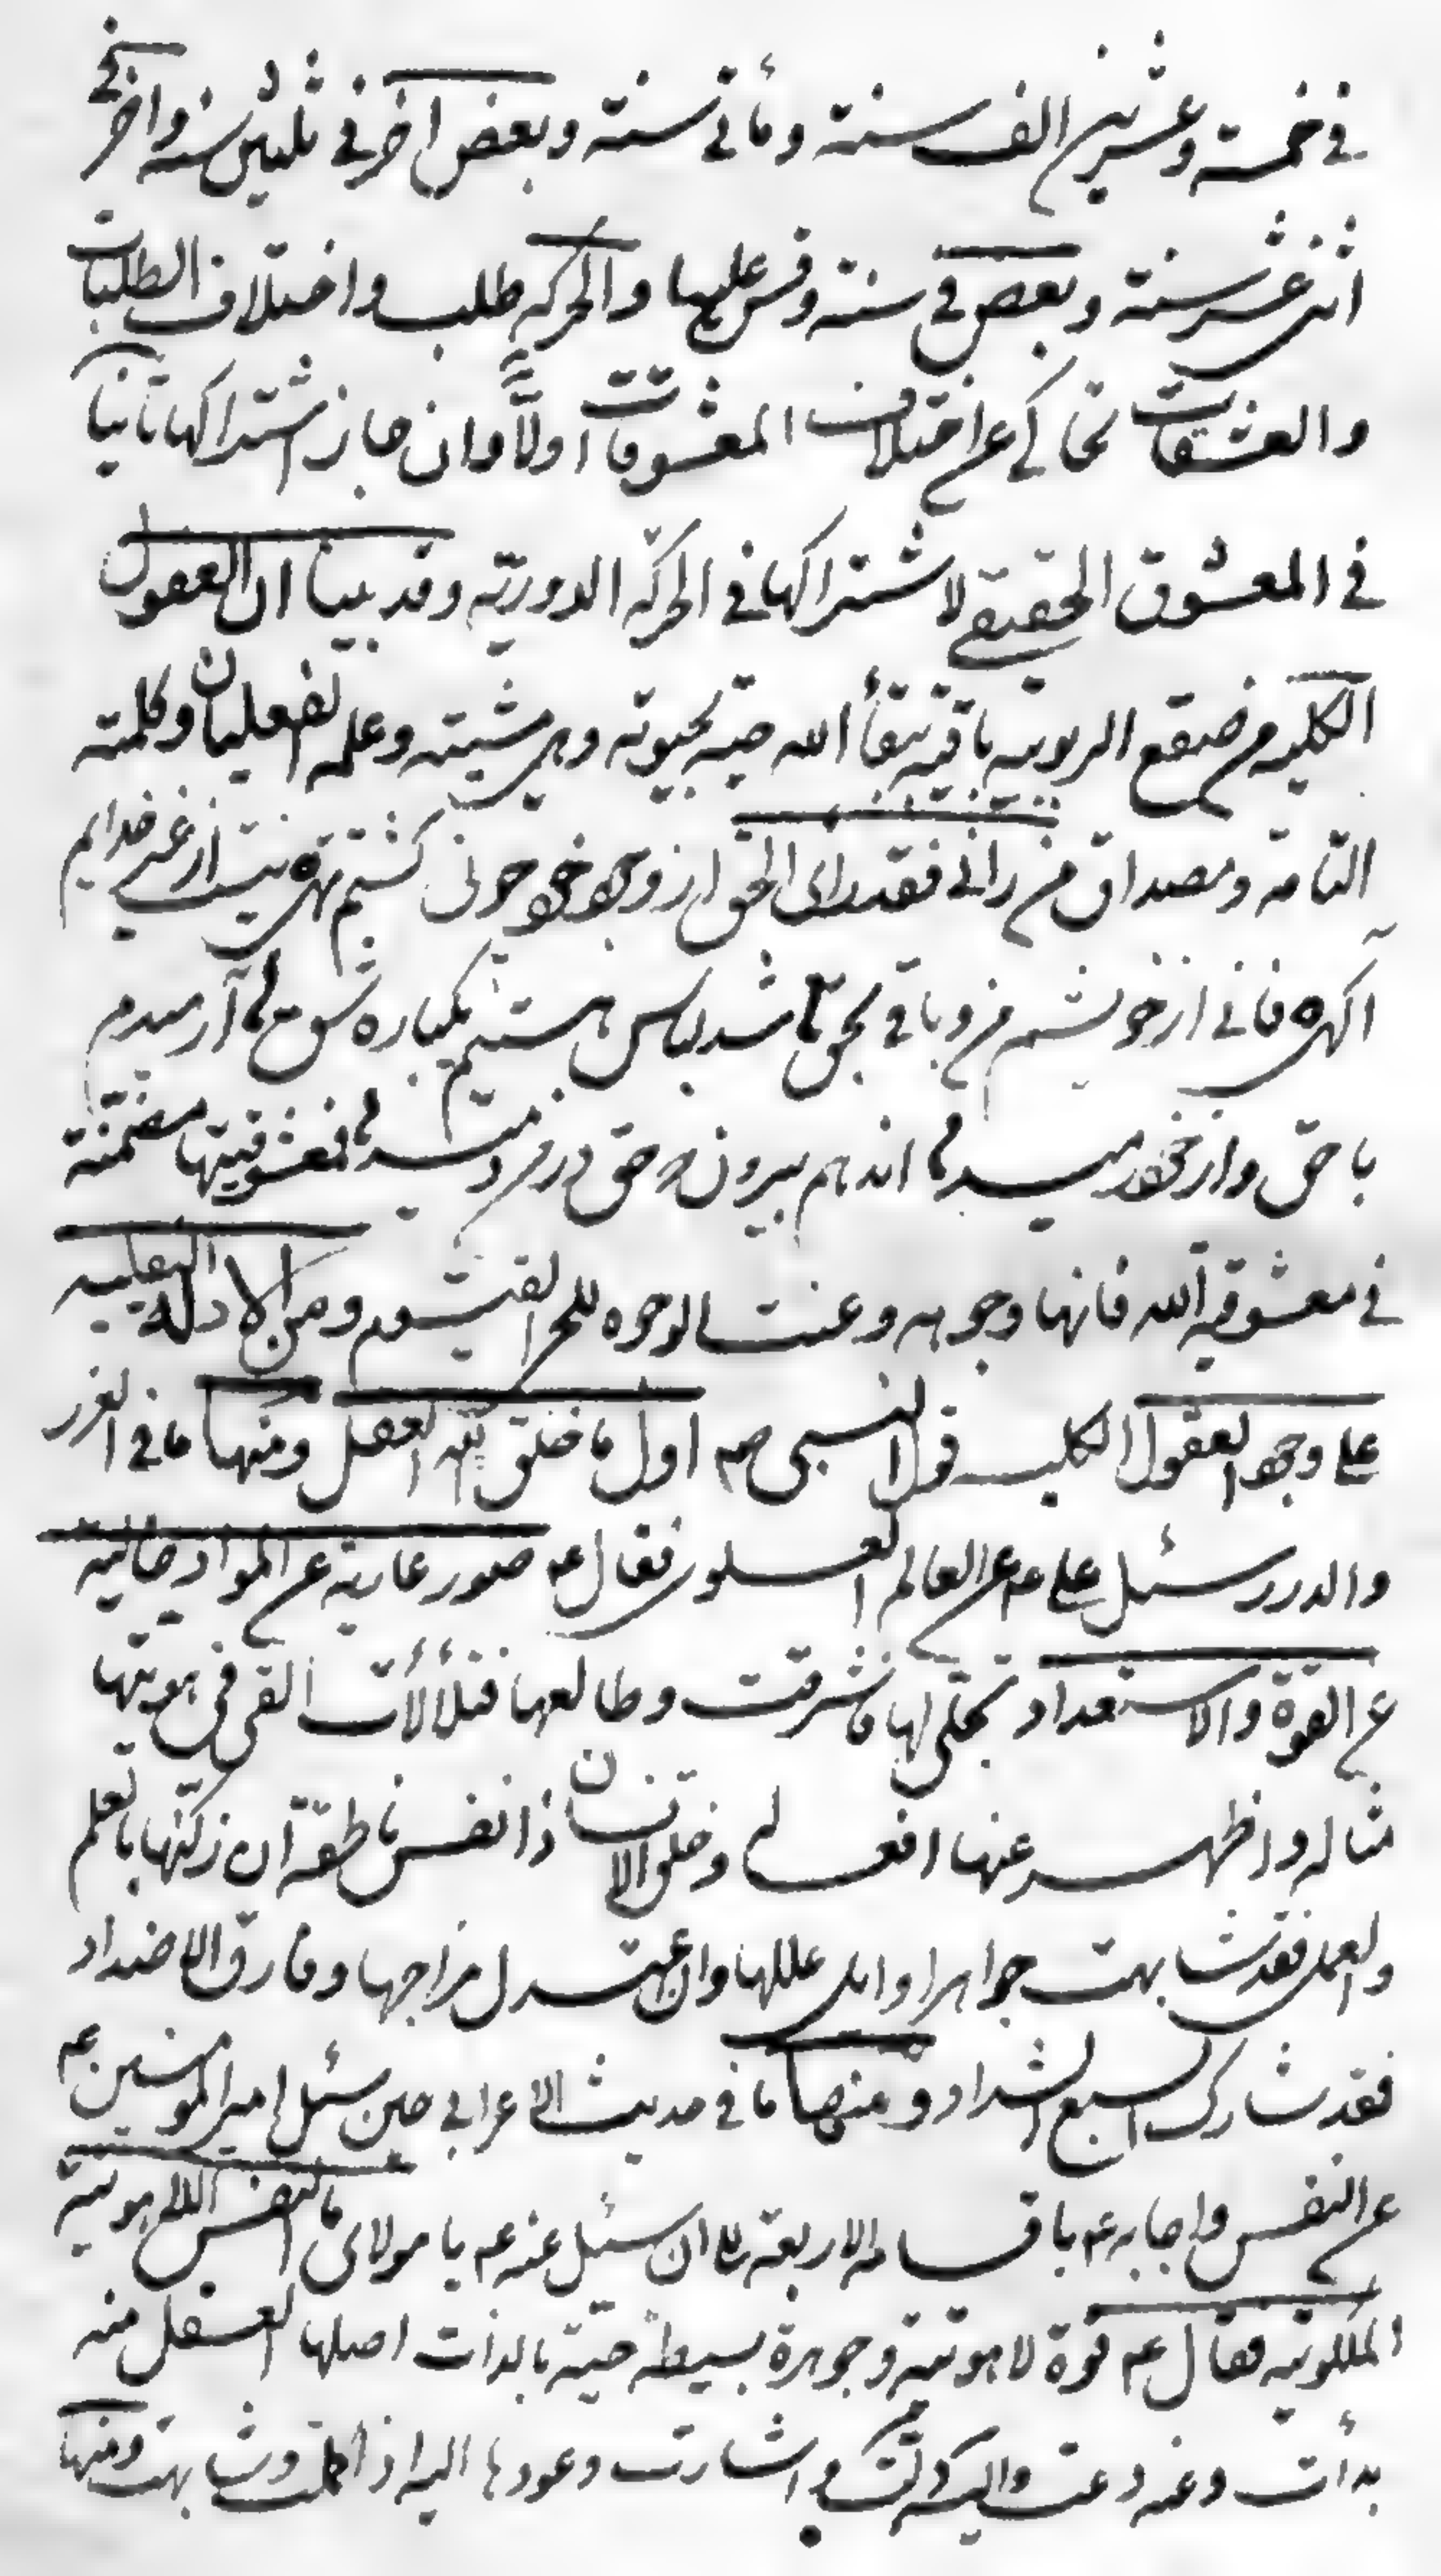 في خمسة وعشرين الف سنة ومأتي سنة وبعض اخر في ثلثين سنة واخر في
اثنى عشر سنة وبعض في سنة وقس عليها والحركة طلب واختلاف الطلبات
والعشقات تحاكي عن اختلاف المعشوقات اولاً وان جاز اشتراكها ثانيا
في المعشوق الحقيقي لاشتراكها في الحركة الدورية وقد بينا ان العقول
الكلية من صقع الربوبية باقية ببقاء الله حية بحيوته وهي مشيته وعلمه الفعليان وكلمته
التامة ومصداق من رانى فقد راى الحق از وجود خود چونى گشتم تهى نيست از غير خدايم
آگهى فانى از خويشم من وباقى بحق شد لباس هستيم يكباره شق آرميدم
با حق واز خود رميد اند هم بيرون حق در فمعشوقيتها مضمنة
في معشوقية الله فانها وجهه وعنت الوجوه للحي القيوم ومن الادلة النقلية
على وجود العقول الكلية قول النبي صم اول ما خلق الله العقل ومنها ما في الغرر
والدرر سئل علي عم عن العالم العلوى فقال عم صور عارية عن المواد خالية
عن القوة والاستعداد تجلى لها فاشرقت وطالعها فتلألأت القى في هويتها
مثاله واظهر عنها افعاله وخلق الانسان ذا نفس ناطقة ان زكّيها بالعلم
والعمل فقد شابهت جواهر اوائل عللها وان اعتدل مزاجها وفارق الاضداد
فقد شارك السبع الشداد ومنها ما في حديث الاعرابي حين سئل امير المؤمنين عم
عن النفس واجابه عم باقسامه الاربعة الى ان سئل عنه عم يا مولاى ما النفس اللاهوتية
الملكوتية فقال عم قوة لاهوتية وجوهرة بسيطة حية بالذات اصلها العقل منه
بدأت وعنه دعت واليه دلت واشارت وعودها اليه اذا كملت وشابهت ومنها